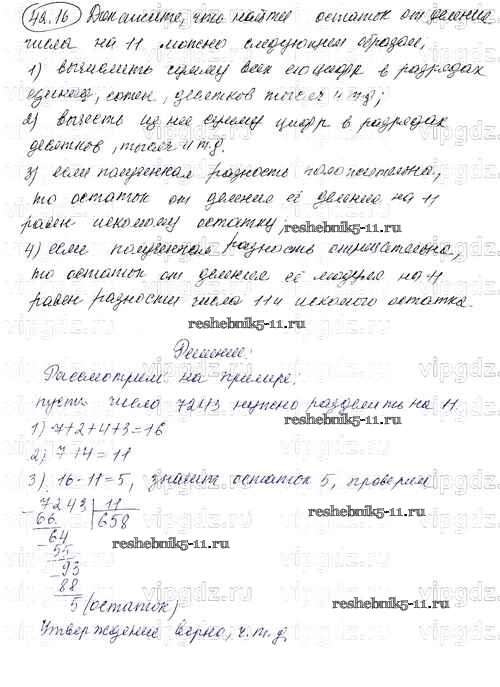 48.16 Докажите, что найти остаток от деления
числа на 11 можно следующим образом,
1) вычислить сумму всех его цифр в разрядах
единиц, сотен, десятков тысяч и т.д;
2) вычесть из нее сумму цифр в разрядах
десятков, тысяч и т.д.
3) если полученная разность положительна,
то остаток от деления её деления на 11
равен искомому остатку;
reshebnik5-11.ru
4) если полученная разность отрицательна,
то остаток от деления её модуля на 11
равен разности числа 11 и искомого остатка.
reshebnik5-11.ru
Решение:
Рассмотрим на примере:
пусть число 7243 нужно разделить на 11.
1) 7+2+4+3=16
reshebnik5-11.ru
2) 7+4=11
3) 16-11=5, значит остаток 5, проверим
7243 11
66 658
64
reshebnik5-11.ru
55
93
88
5 (остаток)
reshebnik5-11.ru
Утверждение верно, ч.т.д.